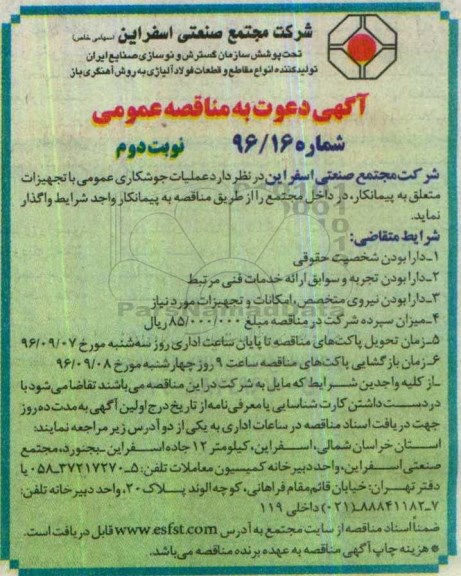 شرکت مجتمع صنعتی اسفراین (سهامی خاص)
تحت پوشش سازمان گسترش و نوسازی صنایع ایران
تولیدکننده انواع مقاطع و قطعات فولاد آلیاژی به روش آهنگری باز
آگهی دعوت به مناقصه عمومی
شماره ۹۶/۱۶ نوبت دوم
شرکت مجتمع صنعتی اسفراین در نظر دارد عملیات جوشکاری عمومی با تجهیزات
متعلق به پیمانکار، در داخل مجتمع را از طریق مناقصه به پیمانکار واجد شرایط واگذار
نماید.
شرایط متقاضی:
۱-دارا بودن شخصیت حقوقی
۲-دارا بودن تجربه و سوابق ارائه خدمات فنی مرتبط
۳-دارا بودن نیروی متخصص، امکانات و تجهیزات مورد نیاز
۴-میزان سپرده شرکت در مناقصه مبلغ ۸۵/۰۰۰/۰۰۰ ریال
۵-زمان تحویل پاکت‌های مناقصه تا پایان ساعت اداری روز سه‌شنبه مورخ ۹۶/۰۹/۰۷
۶-زمان بازگشایی پاکت‌های مناقصه ساعت ۹ روز چهارشنبه مورخ ۹۶/۰۹/۰۸
-از کلیه واجدین شرایط که مایل به شرکت در این مناقصه می‌باشند تقاضا می‌شود با
در دست داشتن کارت شناسایی یا معرفی‌نامه از تاریخ درج اولین آگهی به مدت ده روز
جهت دریافت اسناد مناقصه در ساعات اداری به یکی از دو آدرس زیر مراجعه نمایند:
استان خراسان شمالی، اسفراین، کیلومتر ۱۲ جاده اسفراین-بجنورد، مجتمع
صنعتی اسفراین، واحد دبیرخانه کمیسیون معاملات تلفن: ۵-۳۷۲۱۷۲۷۰-۰۵۸ یا
دفتر تهران: خیابان قائم‌مقام فراهانی، کوچه الوند پلاک ۲۰، واحد دبیرخانه تلفن:
۷-۸۸۸۴۱۱۸۲(۰۲۱) داخلی ۱۱۹
ضمنا اسناد مناقصه از سایت مجتمع به آدرس www.esfst.com قابل دریافت است.
* هزینه چاپ آگهی مناقصه به عهده برنده مناقصه می‌باشد.
ParsNamadData